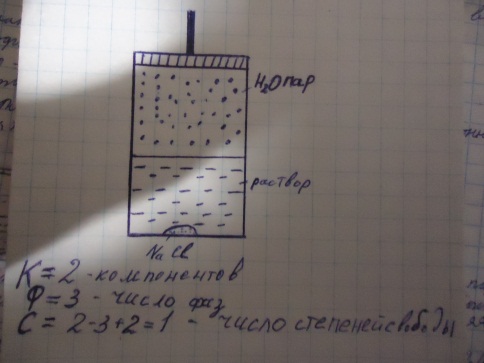 H₂O пар
раствор
NaCl
K = 2 - компонентов
Ф = 3 - число фаз
C = 2-3+2=1 - число степеней свободы